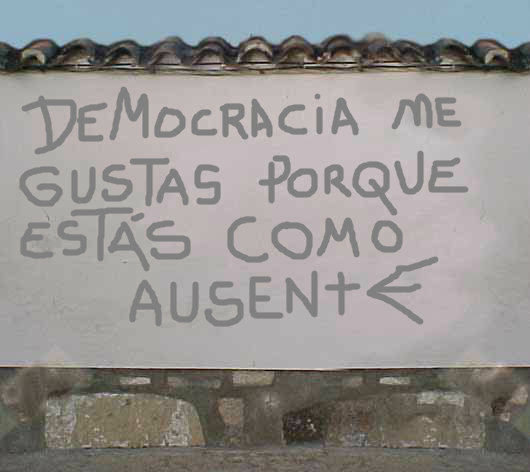 DEMOCRACIA ME
GUSTAS PORQUE
ESTÁS COMO
AUSENTE